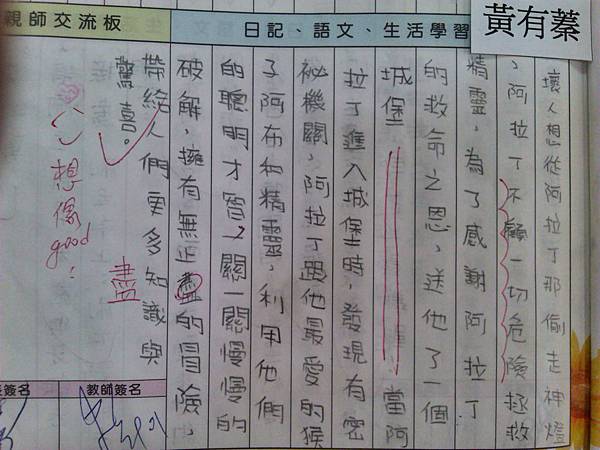 黃有蓁
日記、語文、生活學習
親師交流板
壞人想從阿拉丁那偷走神燈
，阿拉丁不顧一切危險拯救
精靈，為了感謝阿拉丁
的救命之恩，送他了一個
城堡
當阿
拉丁進入城堡時，發現有密
祕機關，阿拉丁跟他最愛的猴
子阿布和精靈，利用他們
的聰明才智，一關一關慢慢的
破解，擁有無止盡的冒險，
帶給人們更多知識與
驚喜。
盡
想像
good!
教師簽名
簽名